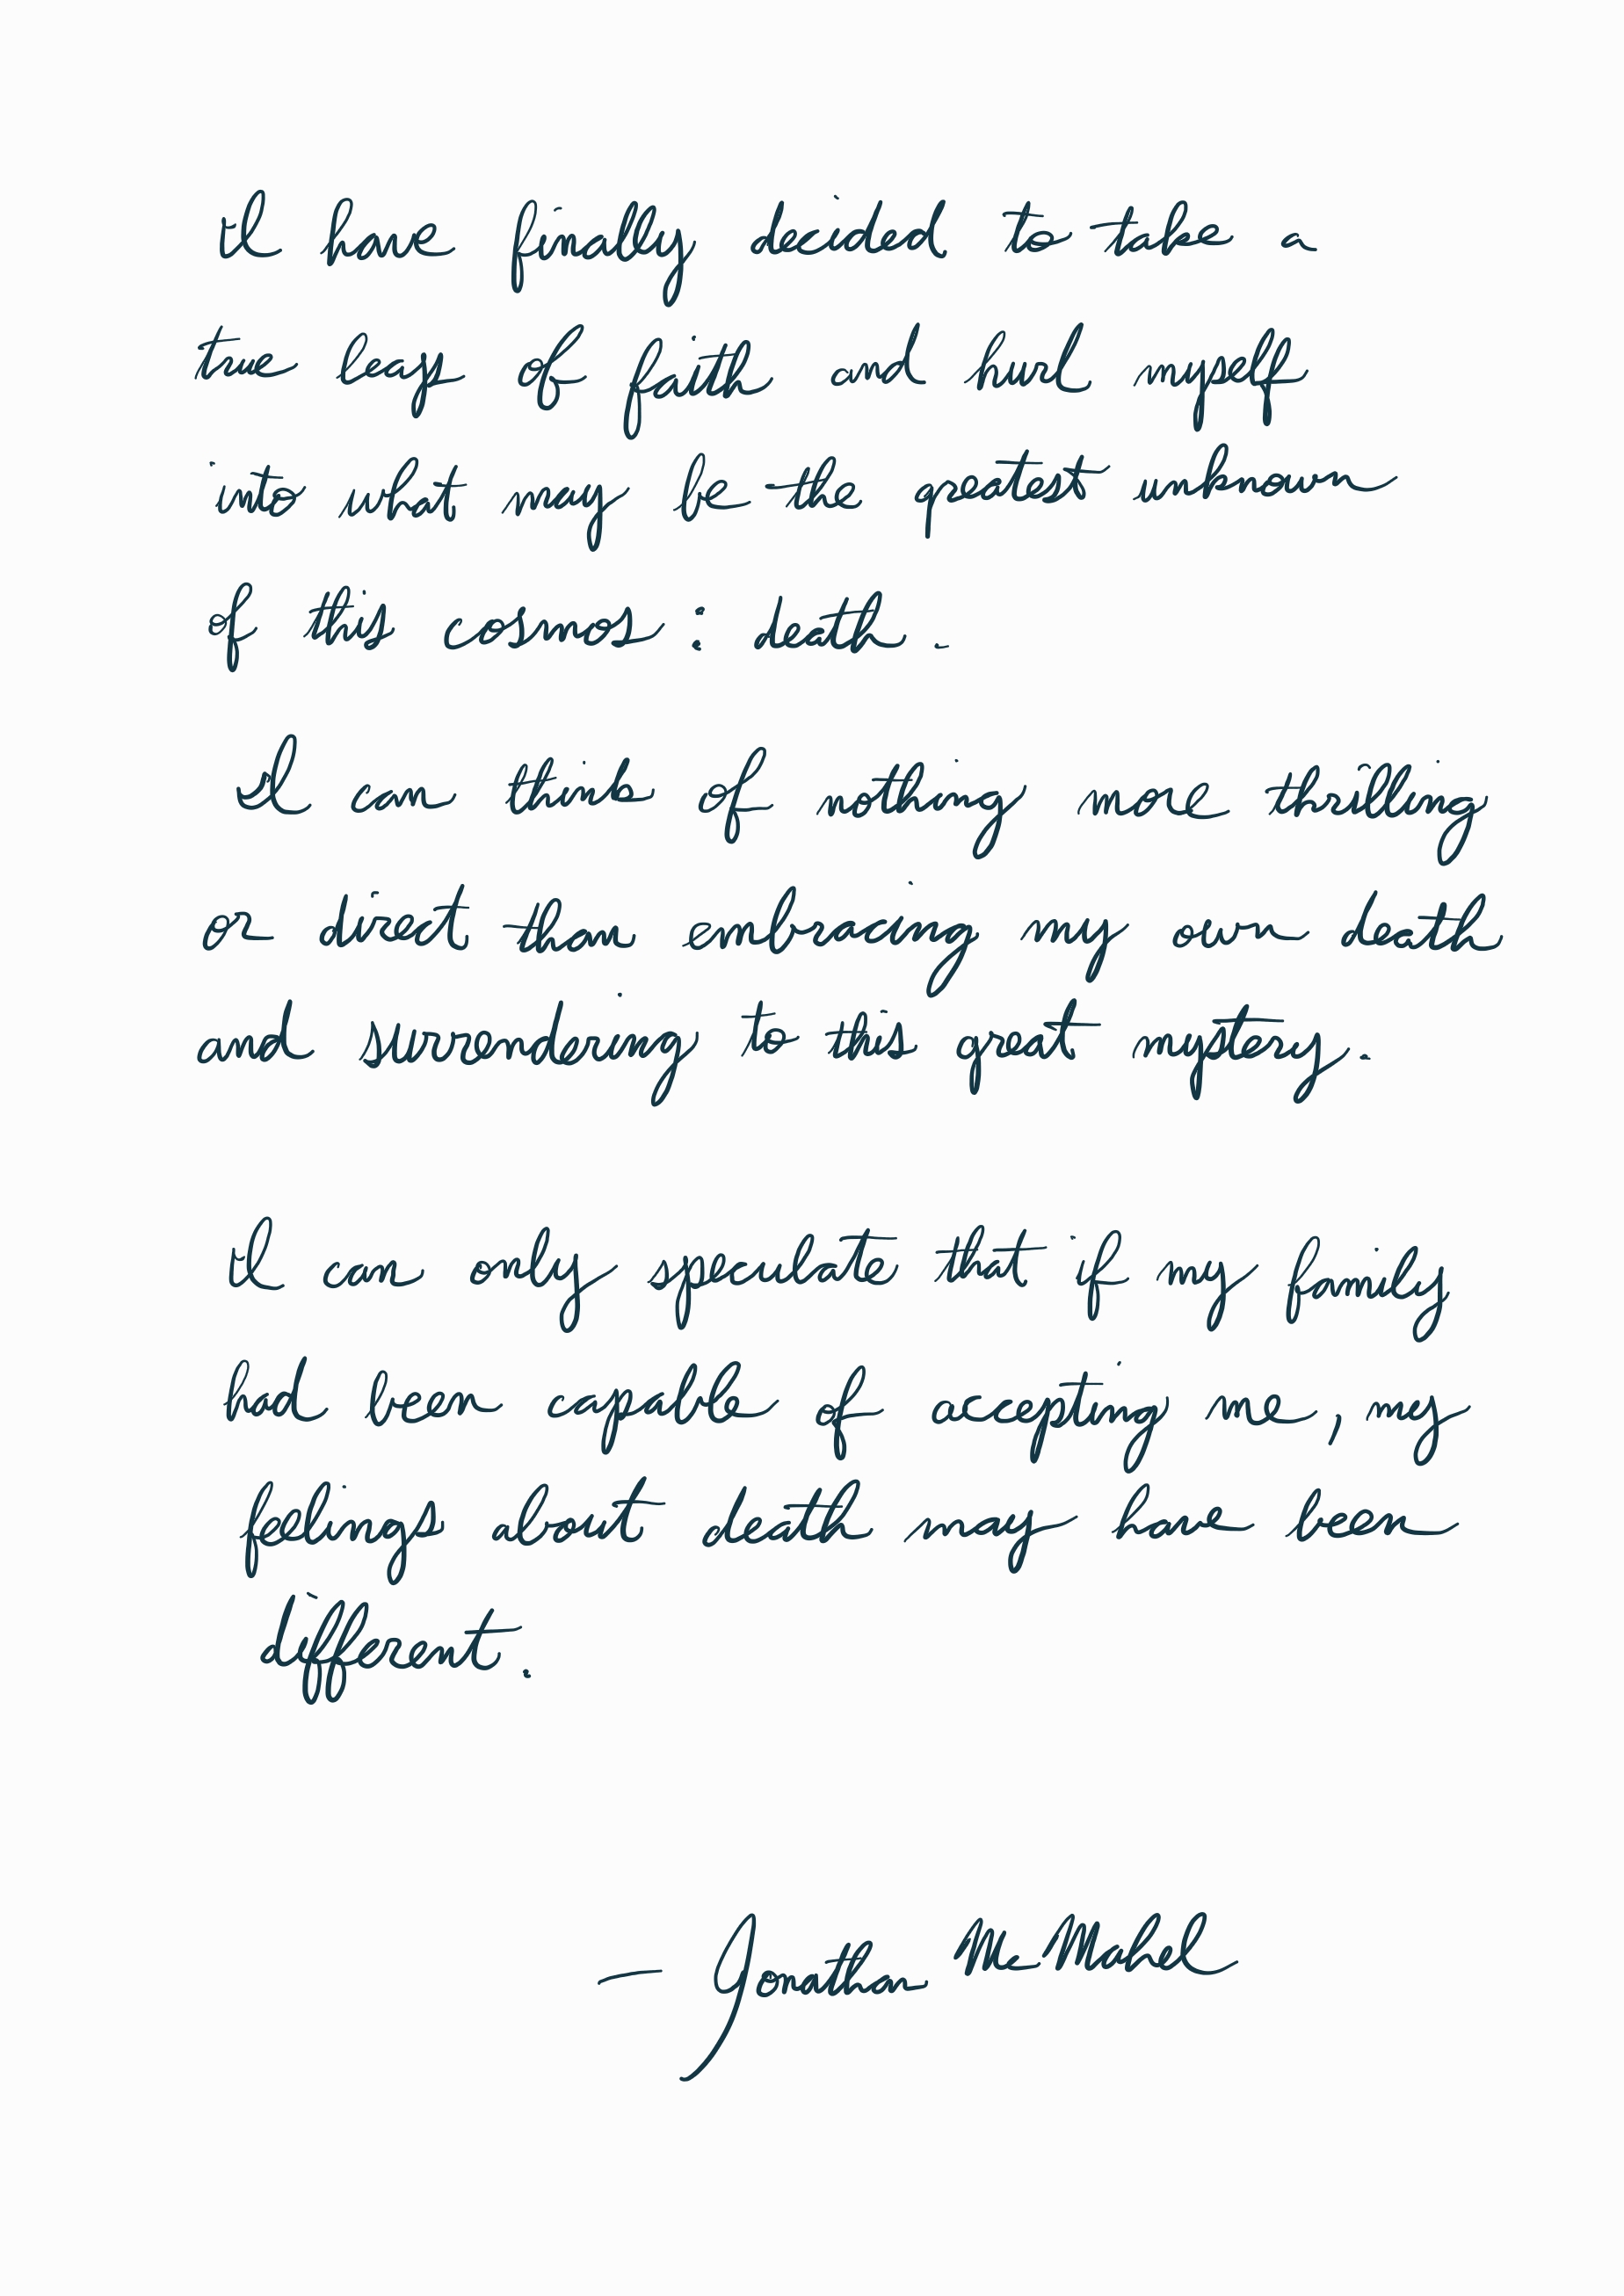 I have finally decided to take a
true leap of faith and hurl myself
into what may be the greatest unknown
of this cosmos : death .
I can think of nothing more thrilling
or direct than embracing my own death
and surrendering to this great mystery.
I can only speculate that if my family
had been capable of accepting me, my
feelings about death may have been
different.
— Jonathan McMahel